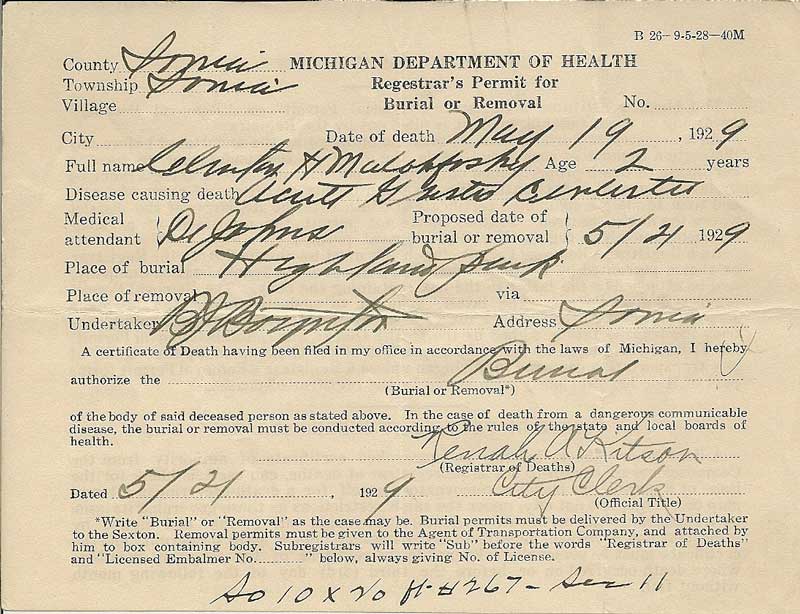 B 26—9-5-28—40M
County Ionia MICHIGAN DEPARTMENT OF HEALTH
Township Ionia Regestrar's Permit for
Village Burial or Removal No.
City Date of death May 19, 1929
Full name Clinton H Age 2 years
Disease causing death Acute Gastro Enteritis
Medical attendant Dr Johns Proposed date of burial or removal 5/21 1929
Place of burial Highland Park
Place of removal via
Undertaker Boynton Address Ionia
A certificate of Death having been filed in my office in accordance with the laws of Michigan, I hereby
authorize the Burial
(Burial or Removal*)
of the body of said deceased person as stated above. In the case of death from a dangerous communicable
disease, the burial or removal must be conducted according to the rules of the state and local boards of
health.
A Kitson
(Registrar of Deaths)
Dated 5/21, 1929 City Clerk
(Official Title)
*Write "Burial" or "Removal" as the case may be. Burial permits must be delivered by the Undertaker
to the Sexton. Removal permits must be given to the Agent of Transportation Company, and attached by
him to box containing body. Subregistrars will write "Sub" before the words "Registrar of Deaths"
and "Licensed Embalmer No.........." below, always giving No. of License.
So 10 x 20 ft #267 - Sec 11